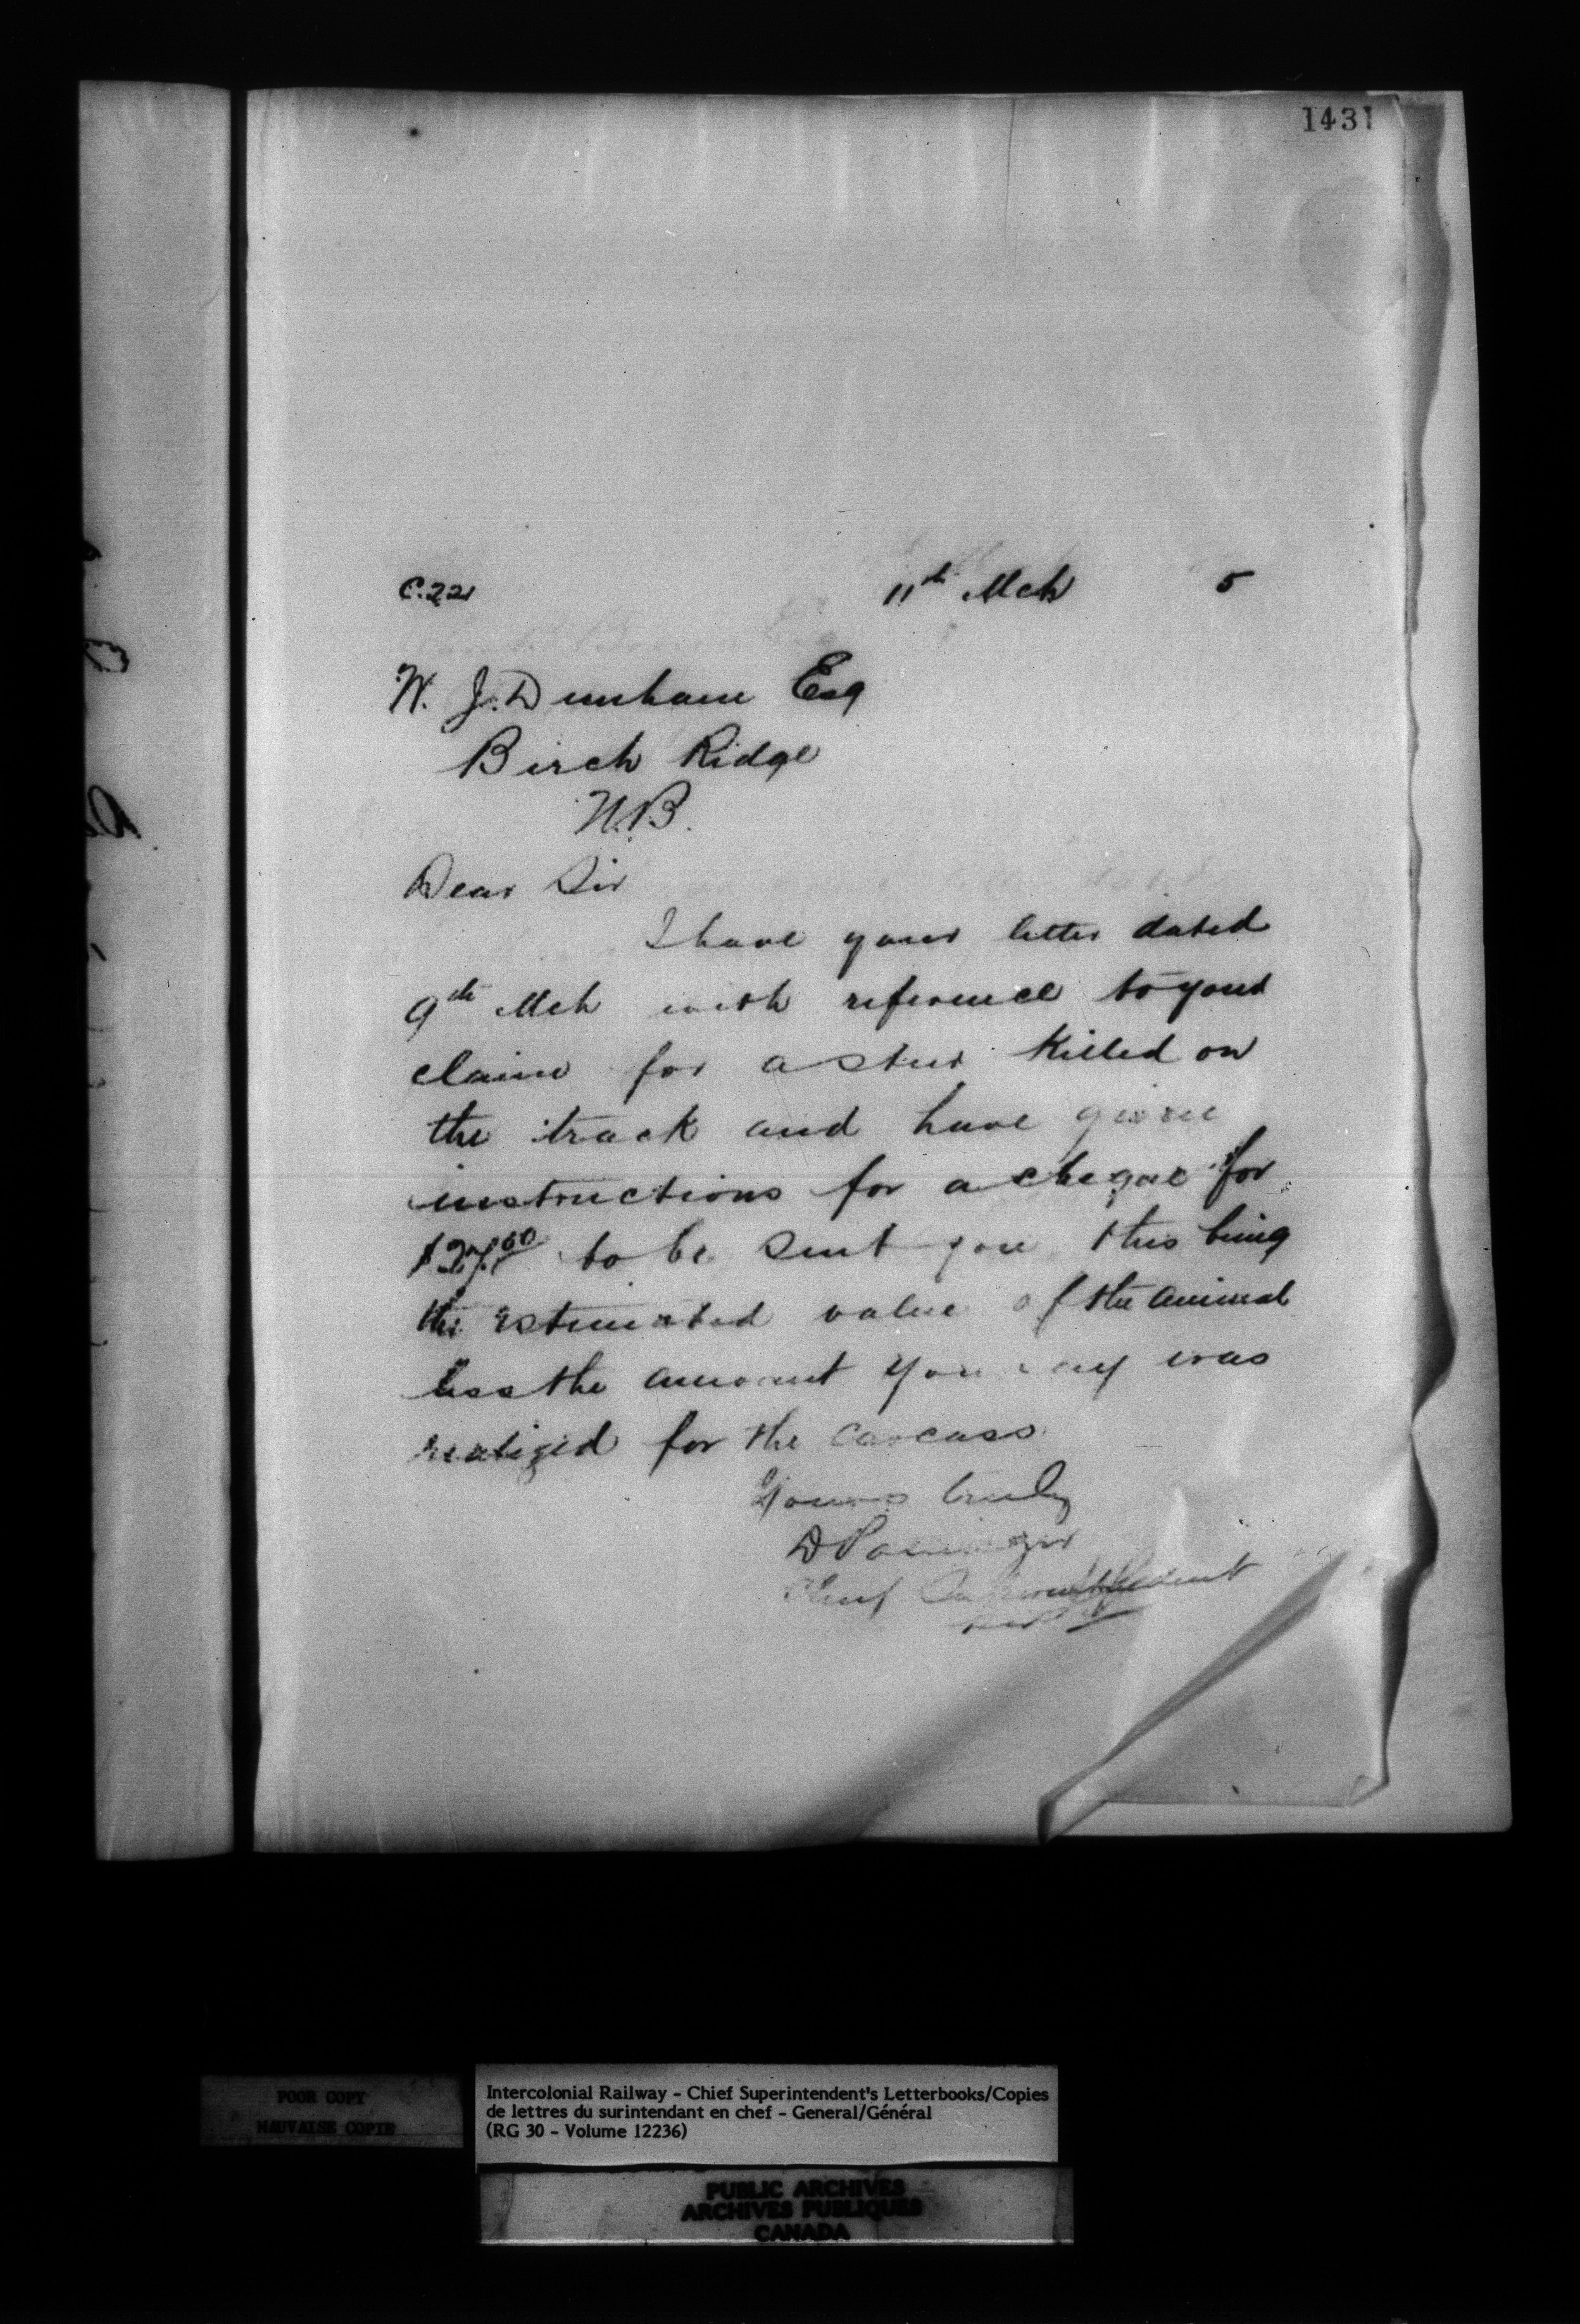 1431
C.221 11th Mch 5
W. J. Dunham Esq
Birch Ridge
N.B.
Dear Sir
I have your letter dated
9th Mch with reference to your
claim for a steer killed on
the track and have given
instructions for a cheque for
$27.00 to be sent you this being
the estimated value of the animal
less the amount you say was
realized for the carcass
Yours truly
D Pottinger
Chief Superintendent
POOR COPY
MAUVAISE COPIE
Intercolonial Railway - Chief Superintendent's Letterbooks/Copies
de lettres du surintendant en chef - General/Général
(RG 30 - Volume 12236)
PUBLIC ARCHIVES
ARCHIVES PUBLIQUES
CANADA